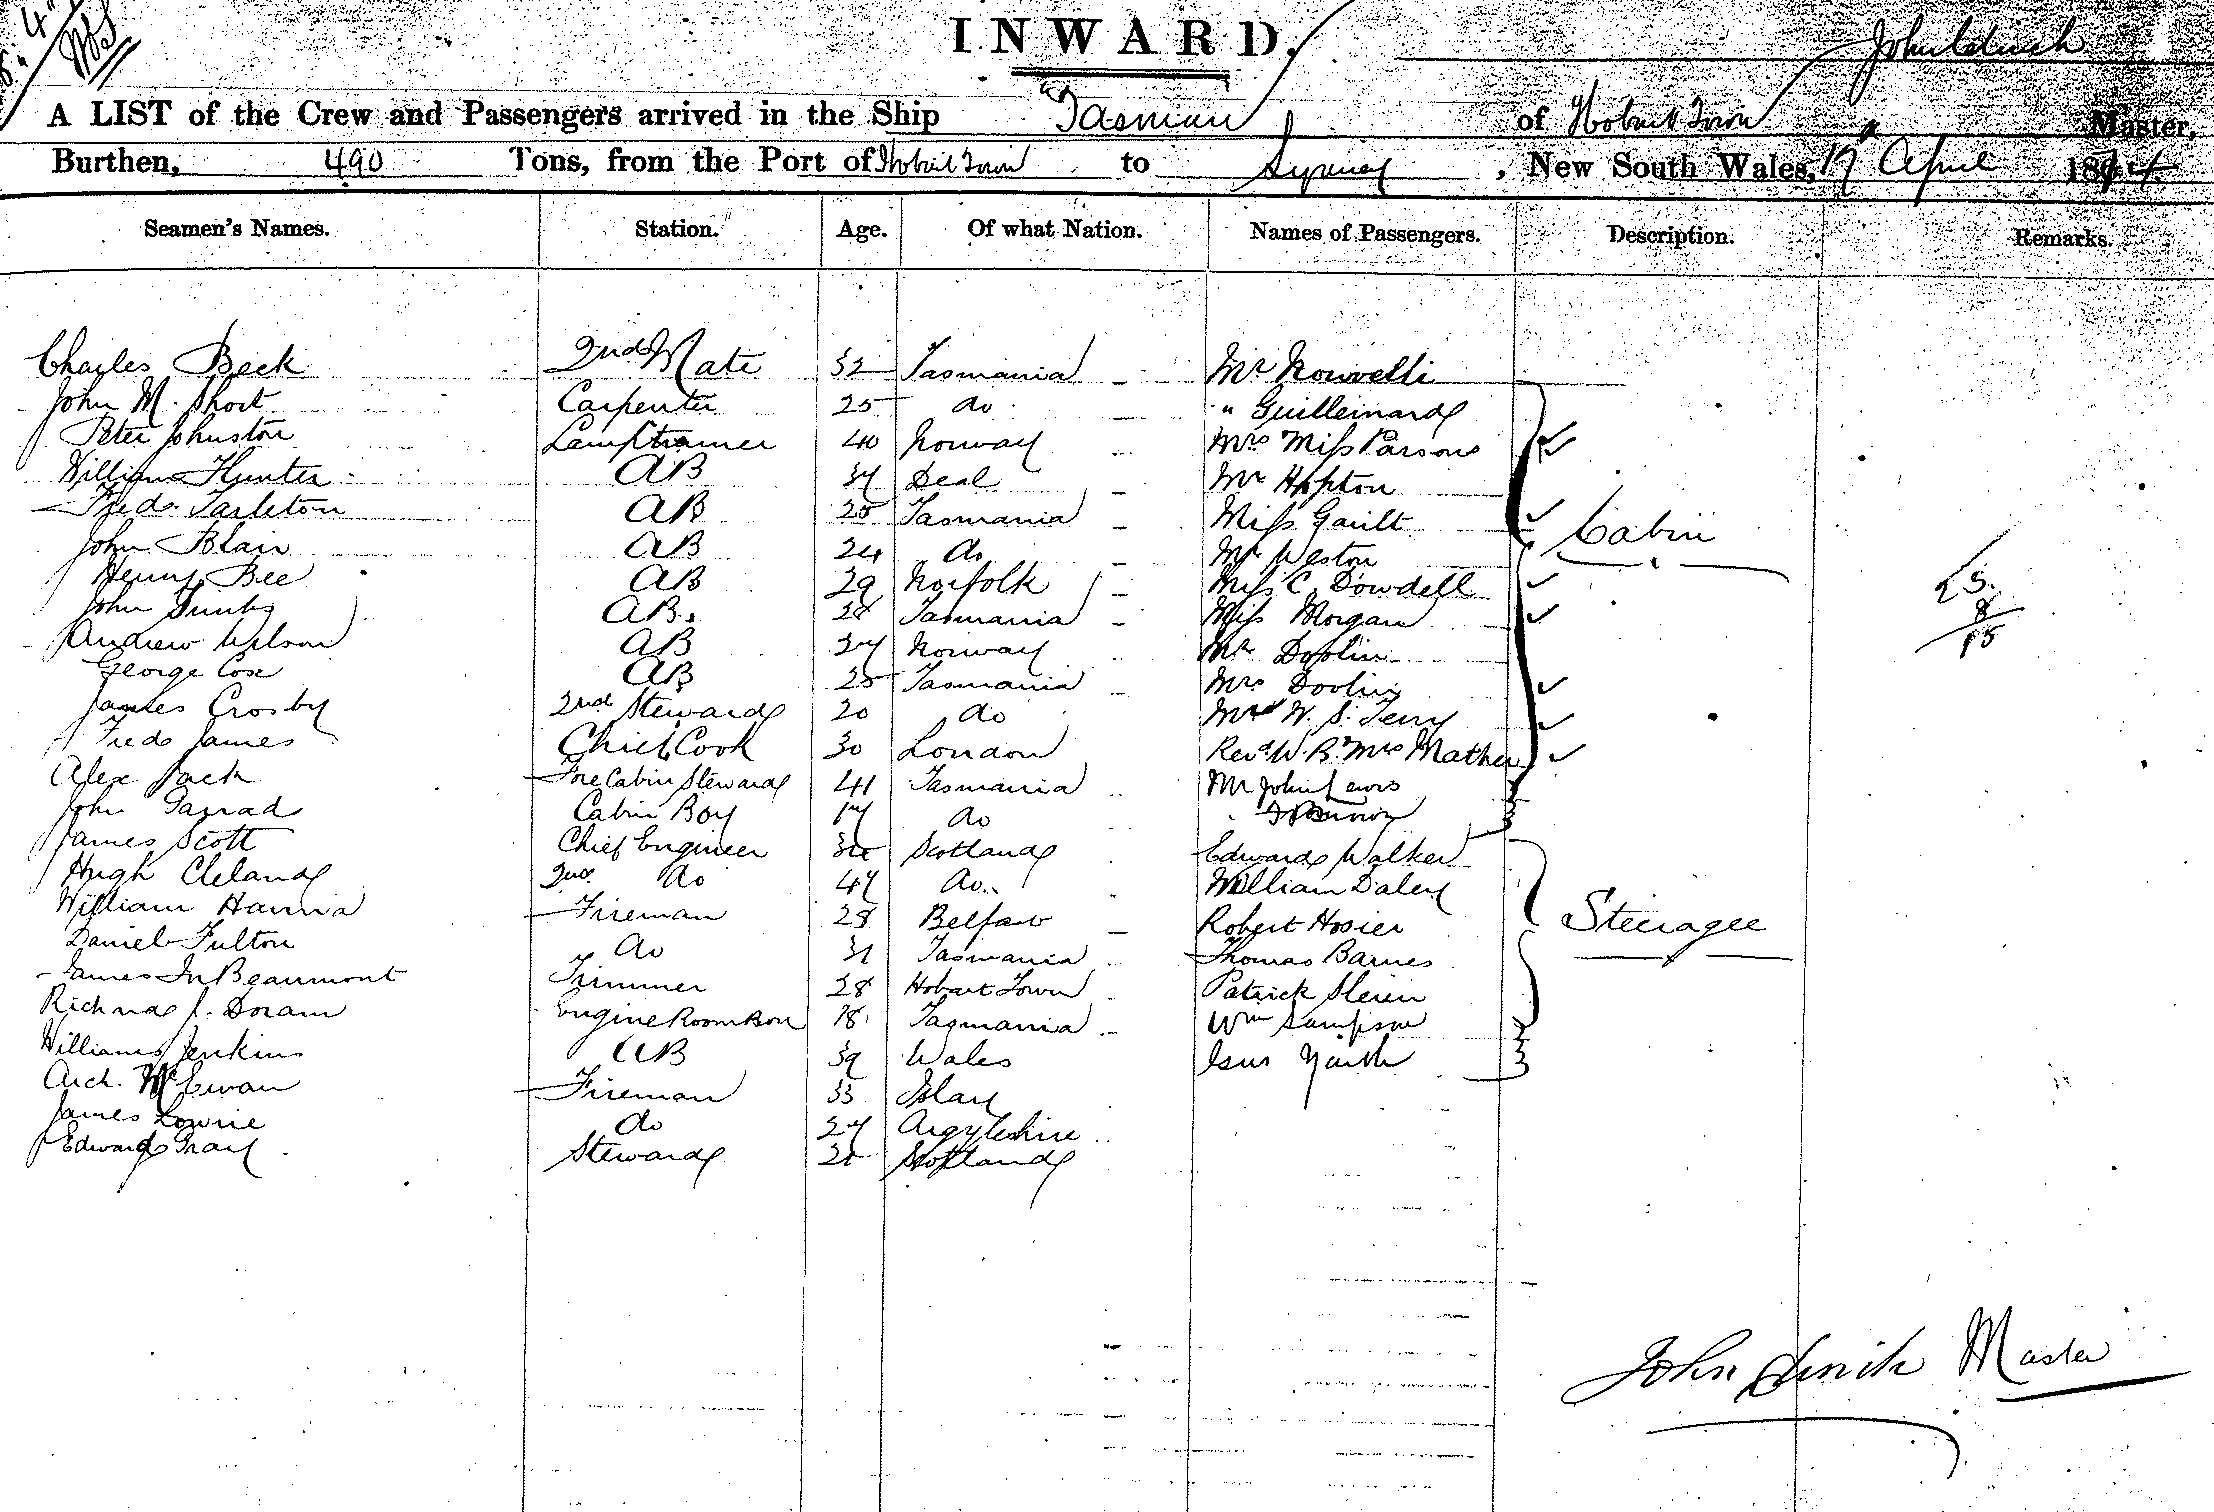 INWARD.
A LIST of the Crew and Passengers arrived in the Ship "Tasman" of Hobart Town Master,
Burthen, 490 Tons, from the Port of Hobart Town to Sydney, New South Wales, 17th April 1874
Seamen's Names. Station. Age. Of what Nation. Names of Passengers. Description. Remarks.
Charles Beck 2nd Mate 32 Tasmania Mr Nouvelli
John M. Short Carpenter 25 do " Guilleinard
Peter Johnston Lamptrimer 40 Norway Mrs Miss Parsons
William Hunter AB 37 Deal Mr Hopton
Fredk Tarleton AB 25 Tasmania Miss Gault
John Blair AB 24 do Mr Weston Cabin
Henry Bee AB 29 Norfolk Miss C. Dowdell
John AB. 28 Tasmania Miss Morgan
Andrew Wilson AB 27 Norway Mr Doolin
George Cox AB 25 Tasmania Mrs Doolin
James Crosby 2nd Steward 20 do W. S. Terry
Fredk James Chief Cook 30 London Revd W. B. & Mrs Mather
Alex Jack Fore Cabin Steward 41 Tasmania Mr John Lewis
John Garrad Cabin Boy 17 do
James Scott Chief Engineer Scotland Edward Walker
Hugh Cleland 2nd do 47 do. William Daley
William Hanna Fireman 28 Belfast Robert Hosier Steeragee
Daniel Fulton do 31 Tasmania Thomas Barnes
James Beaumont Trimmer 28 Hobart Town Patrick
Richard J. Doram Engine Room Boy 18 Tasmania Wm Sampson
William Jenkins AB 39 Wales
Arch. McEwan Fireman 33 Islay
James Lowrie do 27 Argyleshire
Edward Gray Steward Scotland
John Clinch Master